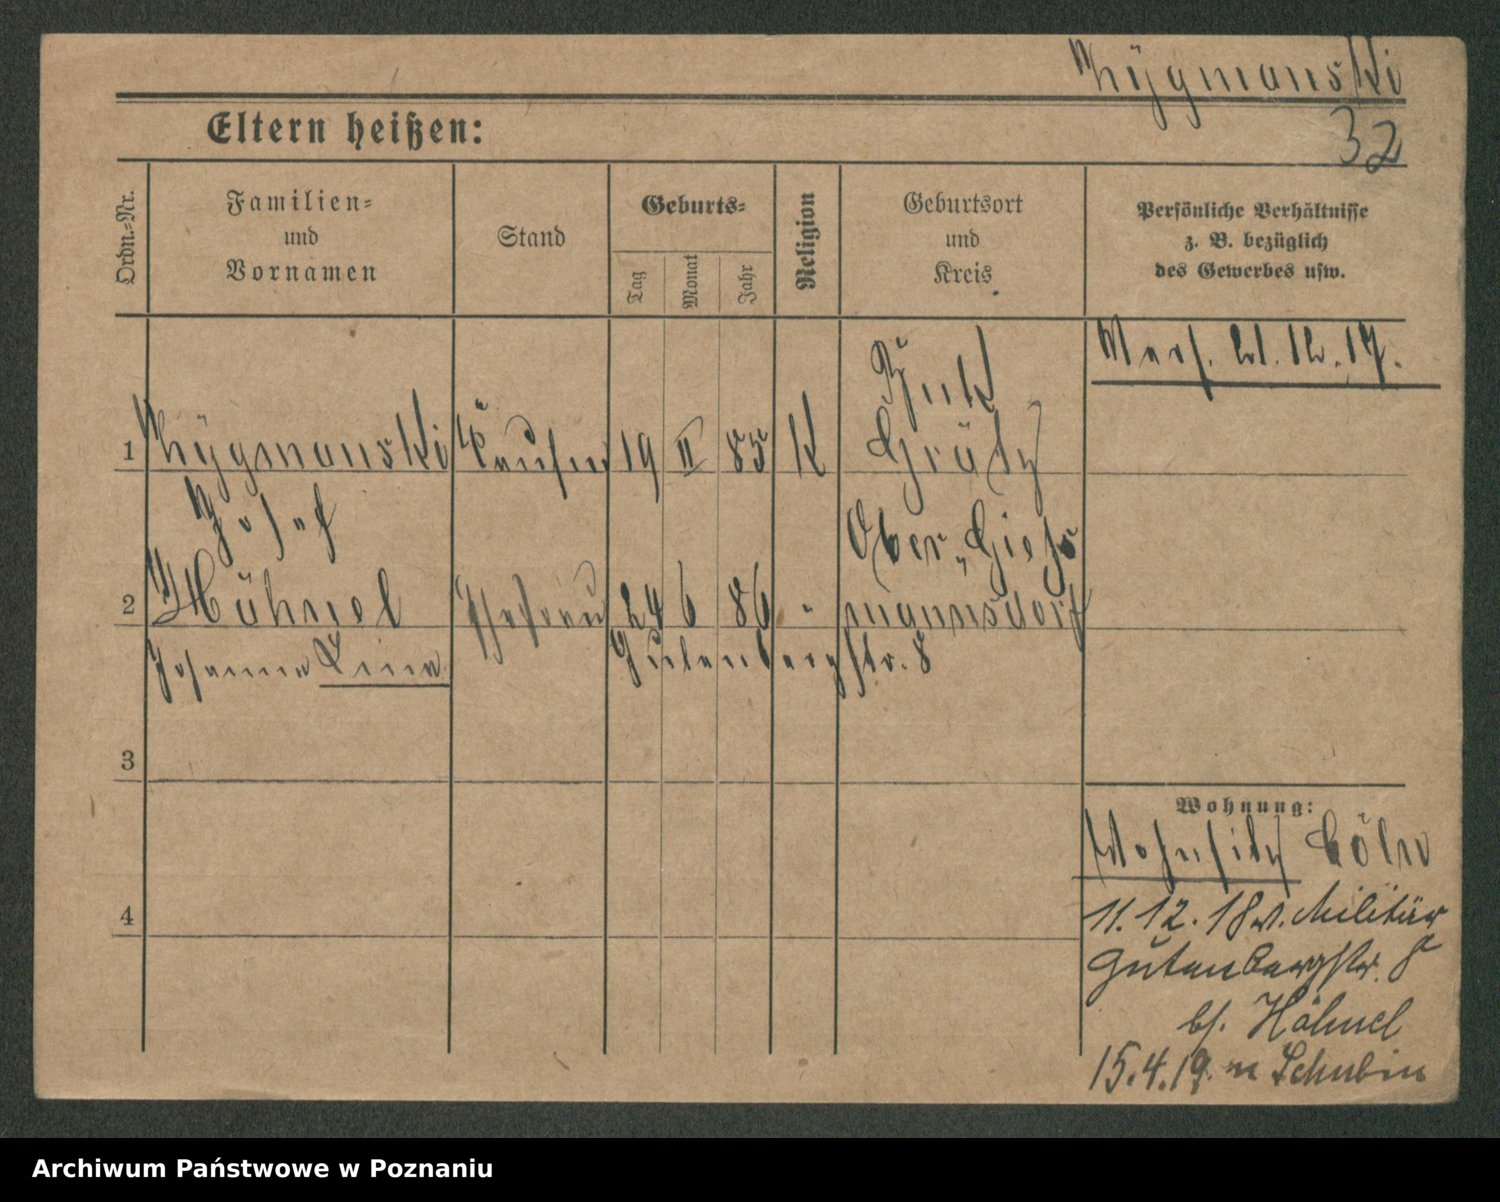 Zÿgmanski
32
Eltern heißen:
Ordn.-Nr.
Familien-
und
Vornamen
Stand
Geburts-
Tag
Monat
Jahr
Religion
Geburtsort
und
Kreis
Persönliche Verhältnisse
z. B. bezüglich
des Gewerbes usw.
21.12.17.
Buk
1 Zÿgmanski 19 II 85 K Grätz
Josef
Ober-
2 Höhnel Ehefrau 24 6 86 " mannsdorf
Johanna Lina Gutenbergstr. 8
3
Wohnung:
Wohnsitz Cöln
4
11.12.18 v. Militär
Gutenbergstr. 8
bs. Höhnel
15.4.19. n Schubin
Archiwum Państwowe w Poznaniu